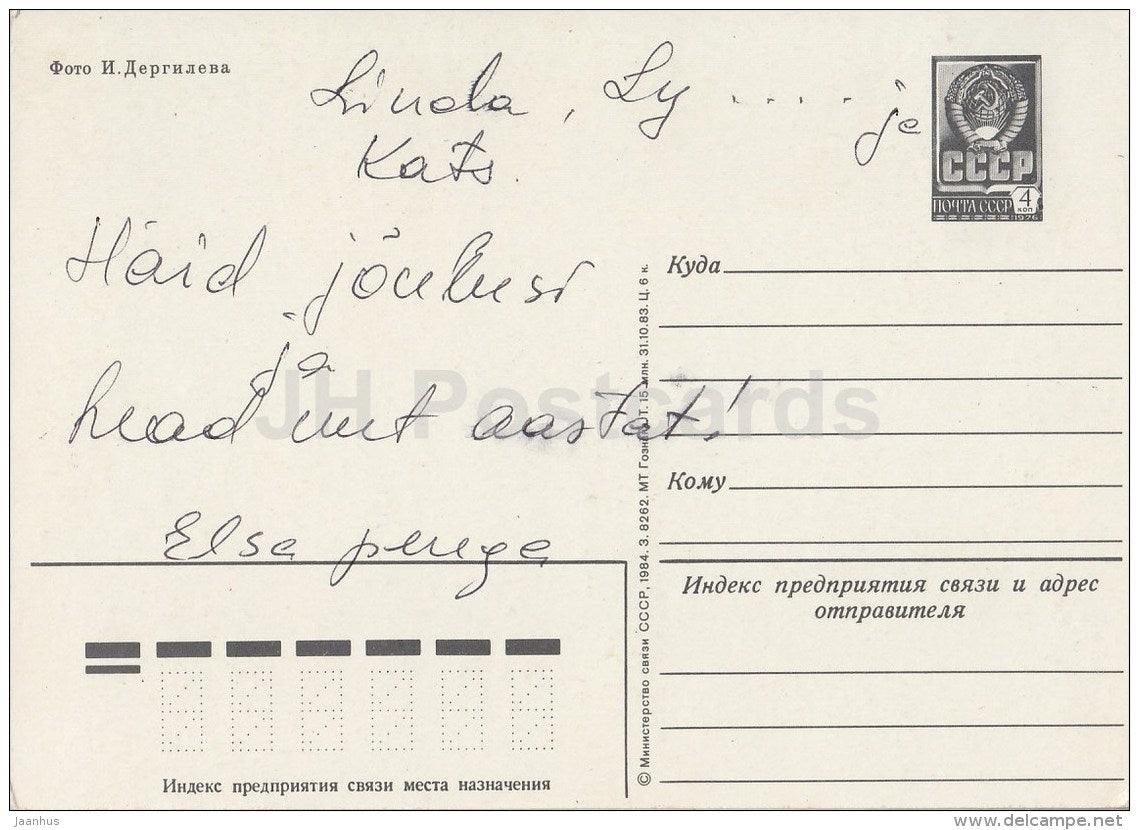 Фото И. Дергилева
Linda, Ly .... ja
Kats.
Häid jõulusi
ja
head uut aastat!
Elsa perega
СССР
ПОЧТА СССР
4
КОП
1976
Куда
Кому
Индекс предприятия связи и адрес
отправителя
© Министерство связи СССР, 1984. З. 8262. МТ Гознака. Т. 15 млн. 31.10.83. Ц. 6 к.
Индекс предприятия связи места назначения
JH Postcards
Jaanhus
delcampe.net